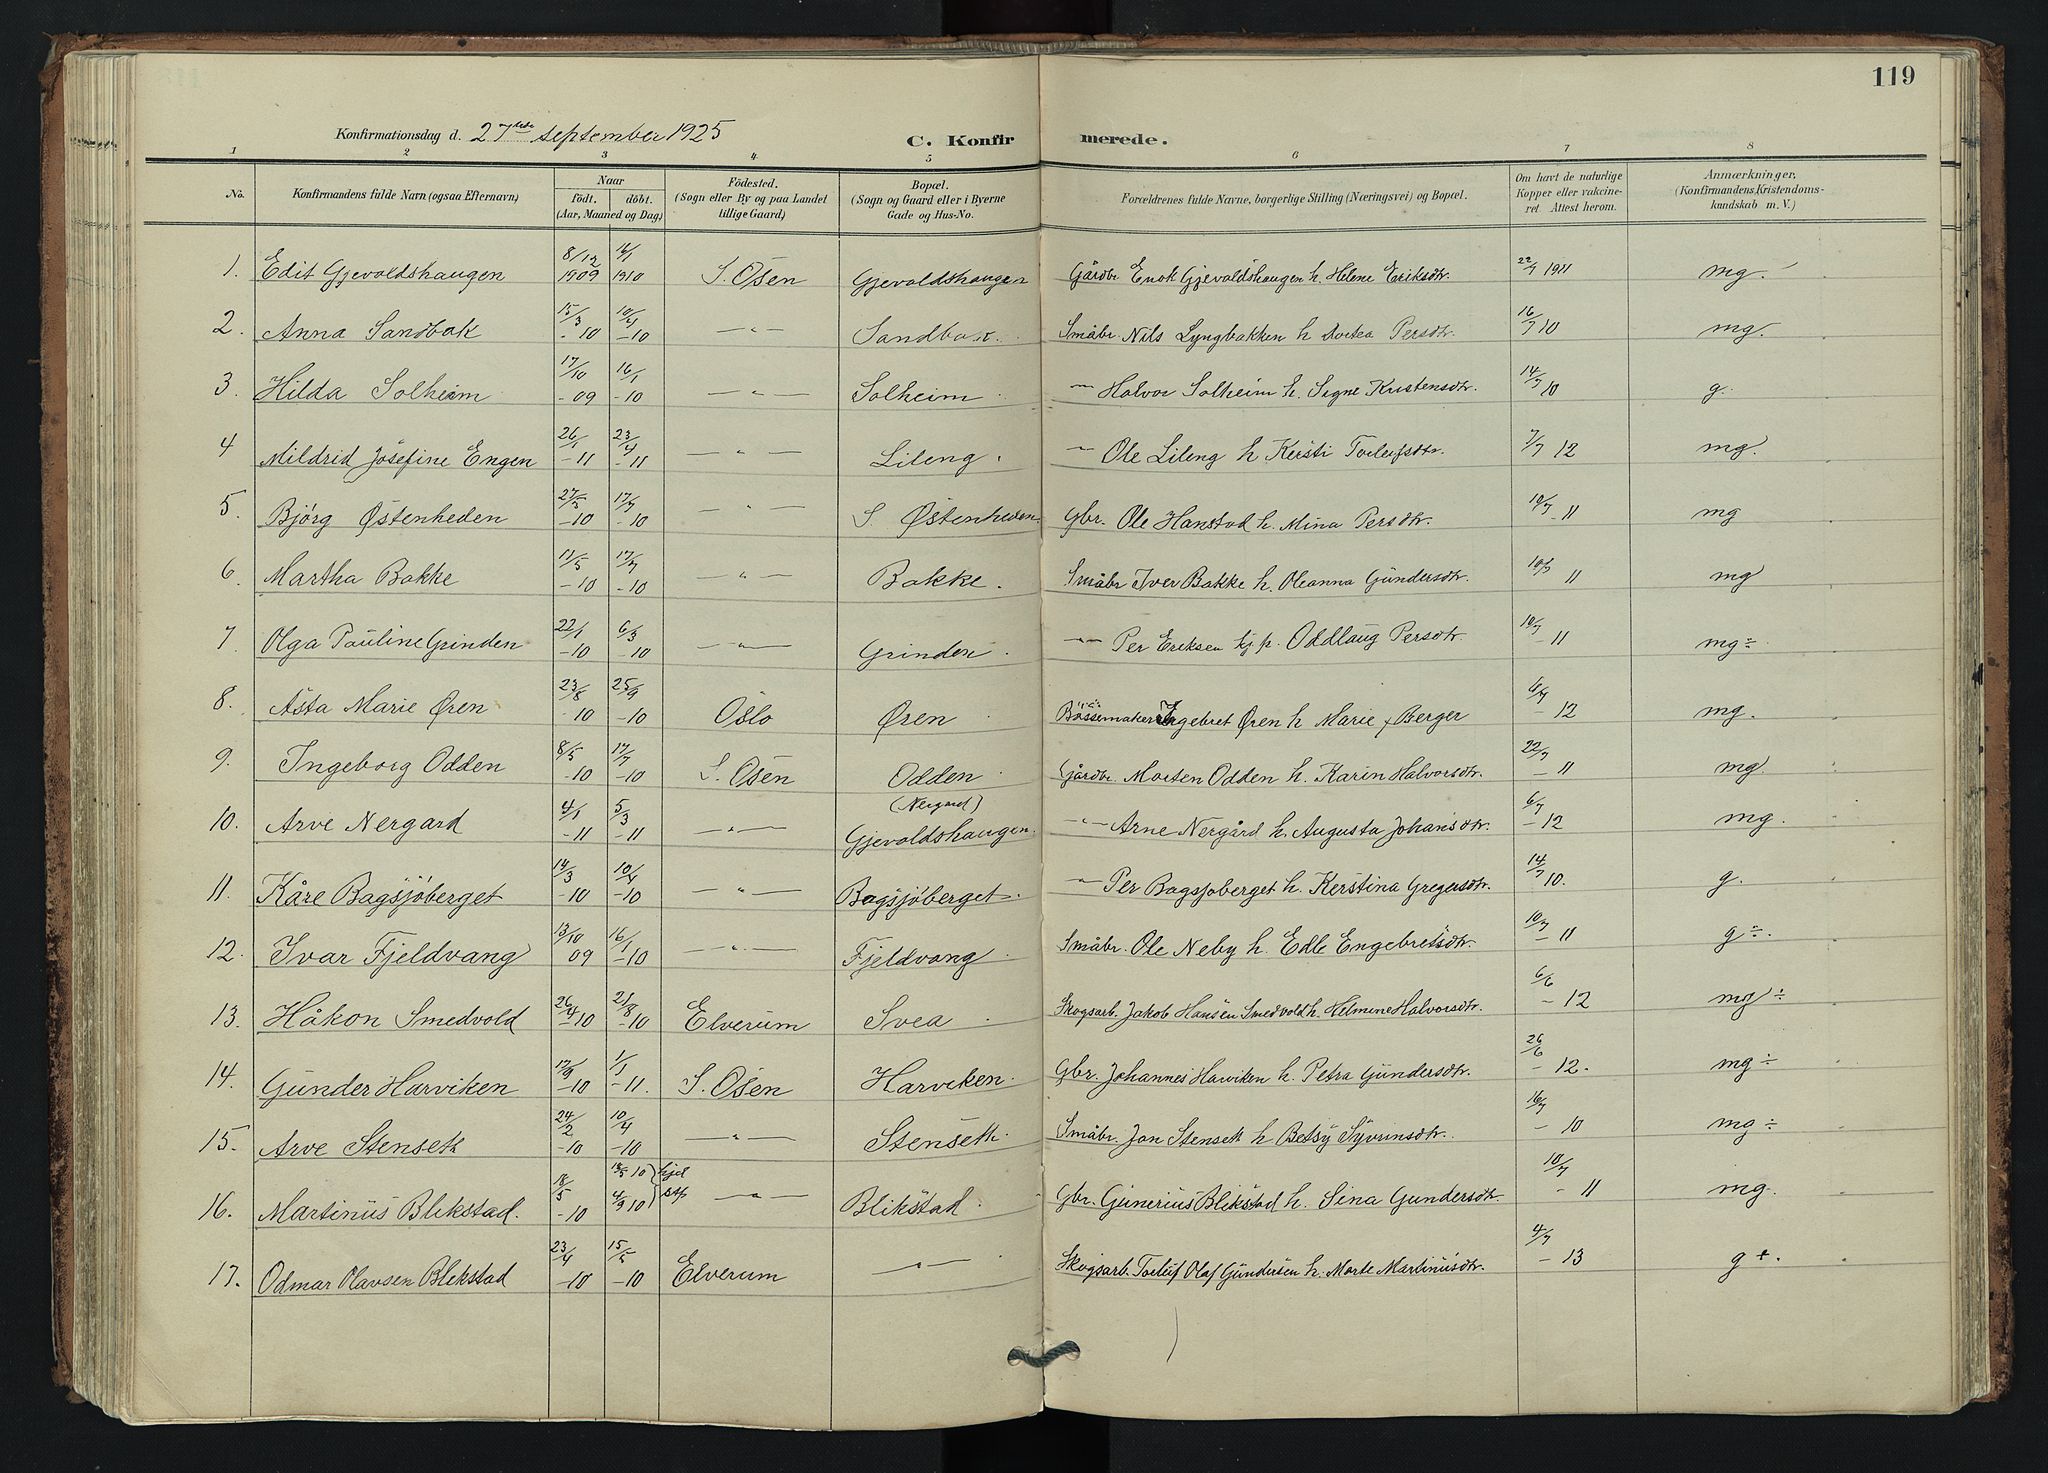 119
Konfirmationsdag d. 27de september 1925 C. Konfirmerede.
1 2 3 4 5 6 7 8
No. Konfirmandens fulde Navn (ogsaa Efternavn) Naar født. døbt. (Aar, Maaned og Dag) Födested. (Sogn eller By og paa Landet tillige Gaard) Bopæl. (Sogn og Gaard eller i Byerne Gade og Hus-No. Forældrenes fulde Navne, borgerlige Stilling (Næringsvei) og Bopæl. Om havt de naturlige Kopper eller vakcineret. Attest herom. Anmærkninger, (Konfirmandens Kristendomskundskab m. V.)
1. Edit Gjevoldshaugen 8/12 1909 16/1 1910 S. Osen Gjevoldshaugen Gårdbr. Enok Gjevoldshaugen h. Helene Eriksdtr. 22/7 1911 mg.
2. Anna Sandbak 15/3 -10 10/4 -10 —"— Sandbak. Småbr. Nils Lyngbakken h Dortea Persdtr. 16/7 10 mg.
3. Hilda Solheim 17/10 -09 16/1 -10 —"— Solheim —"— Halvor Solheim h. Signe Kristensdtr. 14/7 10 g.
4 Mildrid Josefine Engen 26/1 -11 23/4 -11 —"— Lileng. —"— Ole Lileng h Kersti Torleifsdtr. 7/7 12 mg.
5. Bjórg Østenheden 27/5 -10 17/7 -10 —"— S. Østenheden. Gbr. Ole Hanstad h. Mina Persdtr. 10/7 -11 mg
6. Martha Bakke 11/5 -10 17/7 -10 —"— Bakke. Småbr Iver Bakke h. Oleanna Gundersdtr. 10/7 11 mg
7 Olga Pauline Grinden 22/1 -10 6/3 -10 —"— Grinden. —"— Per Eriksen kj. p. Oddlaug Persdtr. 10/7 -11 mg ÷
8. Asta Marie Øren 23/8 -10 25/9 -10 Oslo Øren Bössemaker Ingebret Øren h Marie f Berger 6/7 -12 mg.
9. Ingeborg Odden 8/5 -10 17/7 -10 S. Osen Odden Gårdbr. Morten Odden h. Karin Halvorsdtr. 22/7 -11 mg.
10. Arve Nergard 4/1 -11 5/3 -11 —"— (Nergard) Gjevoldshaugen. —"— Arne Nergård h. Augusta Johansdtr. 6/7 -12 mg.
11. Kåre Bagsjöberget 14/3 -10 10/4 -10 —"— Bagsjöberget. —"— Per Bagsjoberget h. Kerstina Gregersdtr. 14/7 10. g.
12. Ivar Fjeldvang 13/10 09 16/1 -10 —"— Fjeldvang Småbr. Ole Neby h. Edle Engebretsdtr. 10/7 -11 g ÷.
13. Håkon Smedvold 26/4 -10 21/8 -10 Elverum Svea Skogsarb. Jakob Hansen Smedvold h. Helmine Halvorsdtr. 6/6 -12 mg ÷
14. Gunder Harviken 17/9 -10 1/1 -11. S. Osen Harviken. Gbr. Johannes Harviken h. Petra Gundersdtr. 26/6 -12. mg ÷
15. Arve Stenseth 24/2 -10 10/4 -10 —"— Stenseth. Småbr. Jon Stenseth h Betsy Syvrinsdtr. 16/7 -10 mg ÷
16. Martinus Blikstad. 8/5 -10 13/5 10 hjd 4/9 10 stf —"— Blikstad. Gbr. Gunerius Blikstad h. Sina Gundersdtr. 10/7 -11 mg.
17. Odmar Olavsen Blekstad 23/4 -10 15/5 -10 Elverum —"— Skogsarb. Torleif Olaf Gundersen h. Marte Martinusdtr. 4/7 -13 g +.